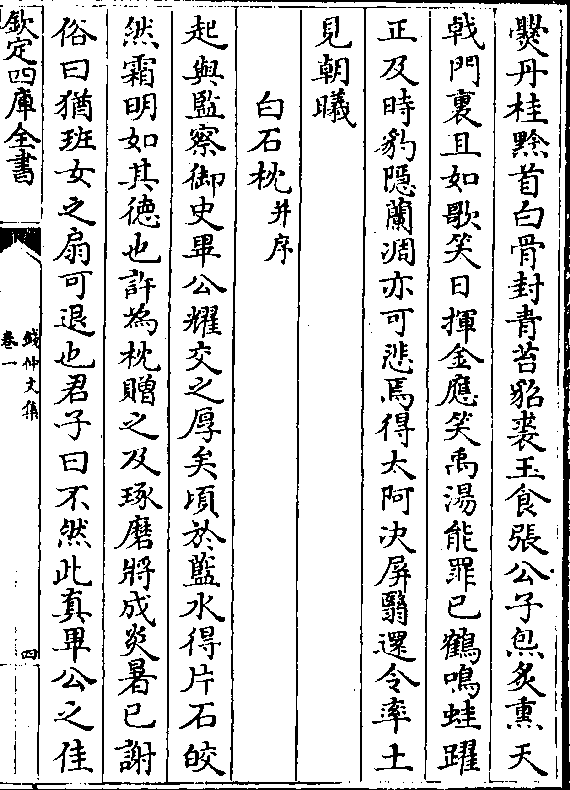 爨丹桂黔首白骨封青苔貂裘玉食張公子炰炙熏天
戟門裏且如歌笑日揮金應笑禹湯能罪已鶴鳴蛙躍
正及時豹隠蘭凋亦可悲焉得太阿决屏翳還令率土
見朝曦
白石枕并序
起與監察御史畢公耀交之厚矣頃於藍水得片石皎
然霜明如其徳也許為枕贈之及琢磨將成炎暑已謝
俗曰猶班女之扇可退也君子曰不然此真畢公之佳
欽定四庫全書
錢仲文集
卷一
四